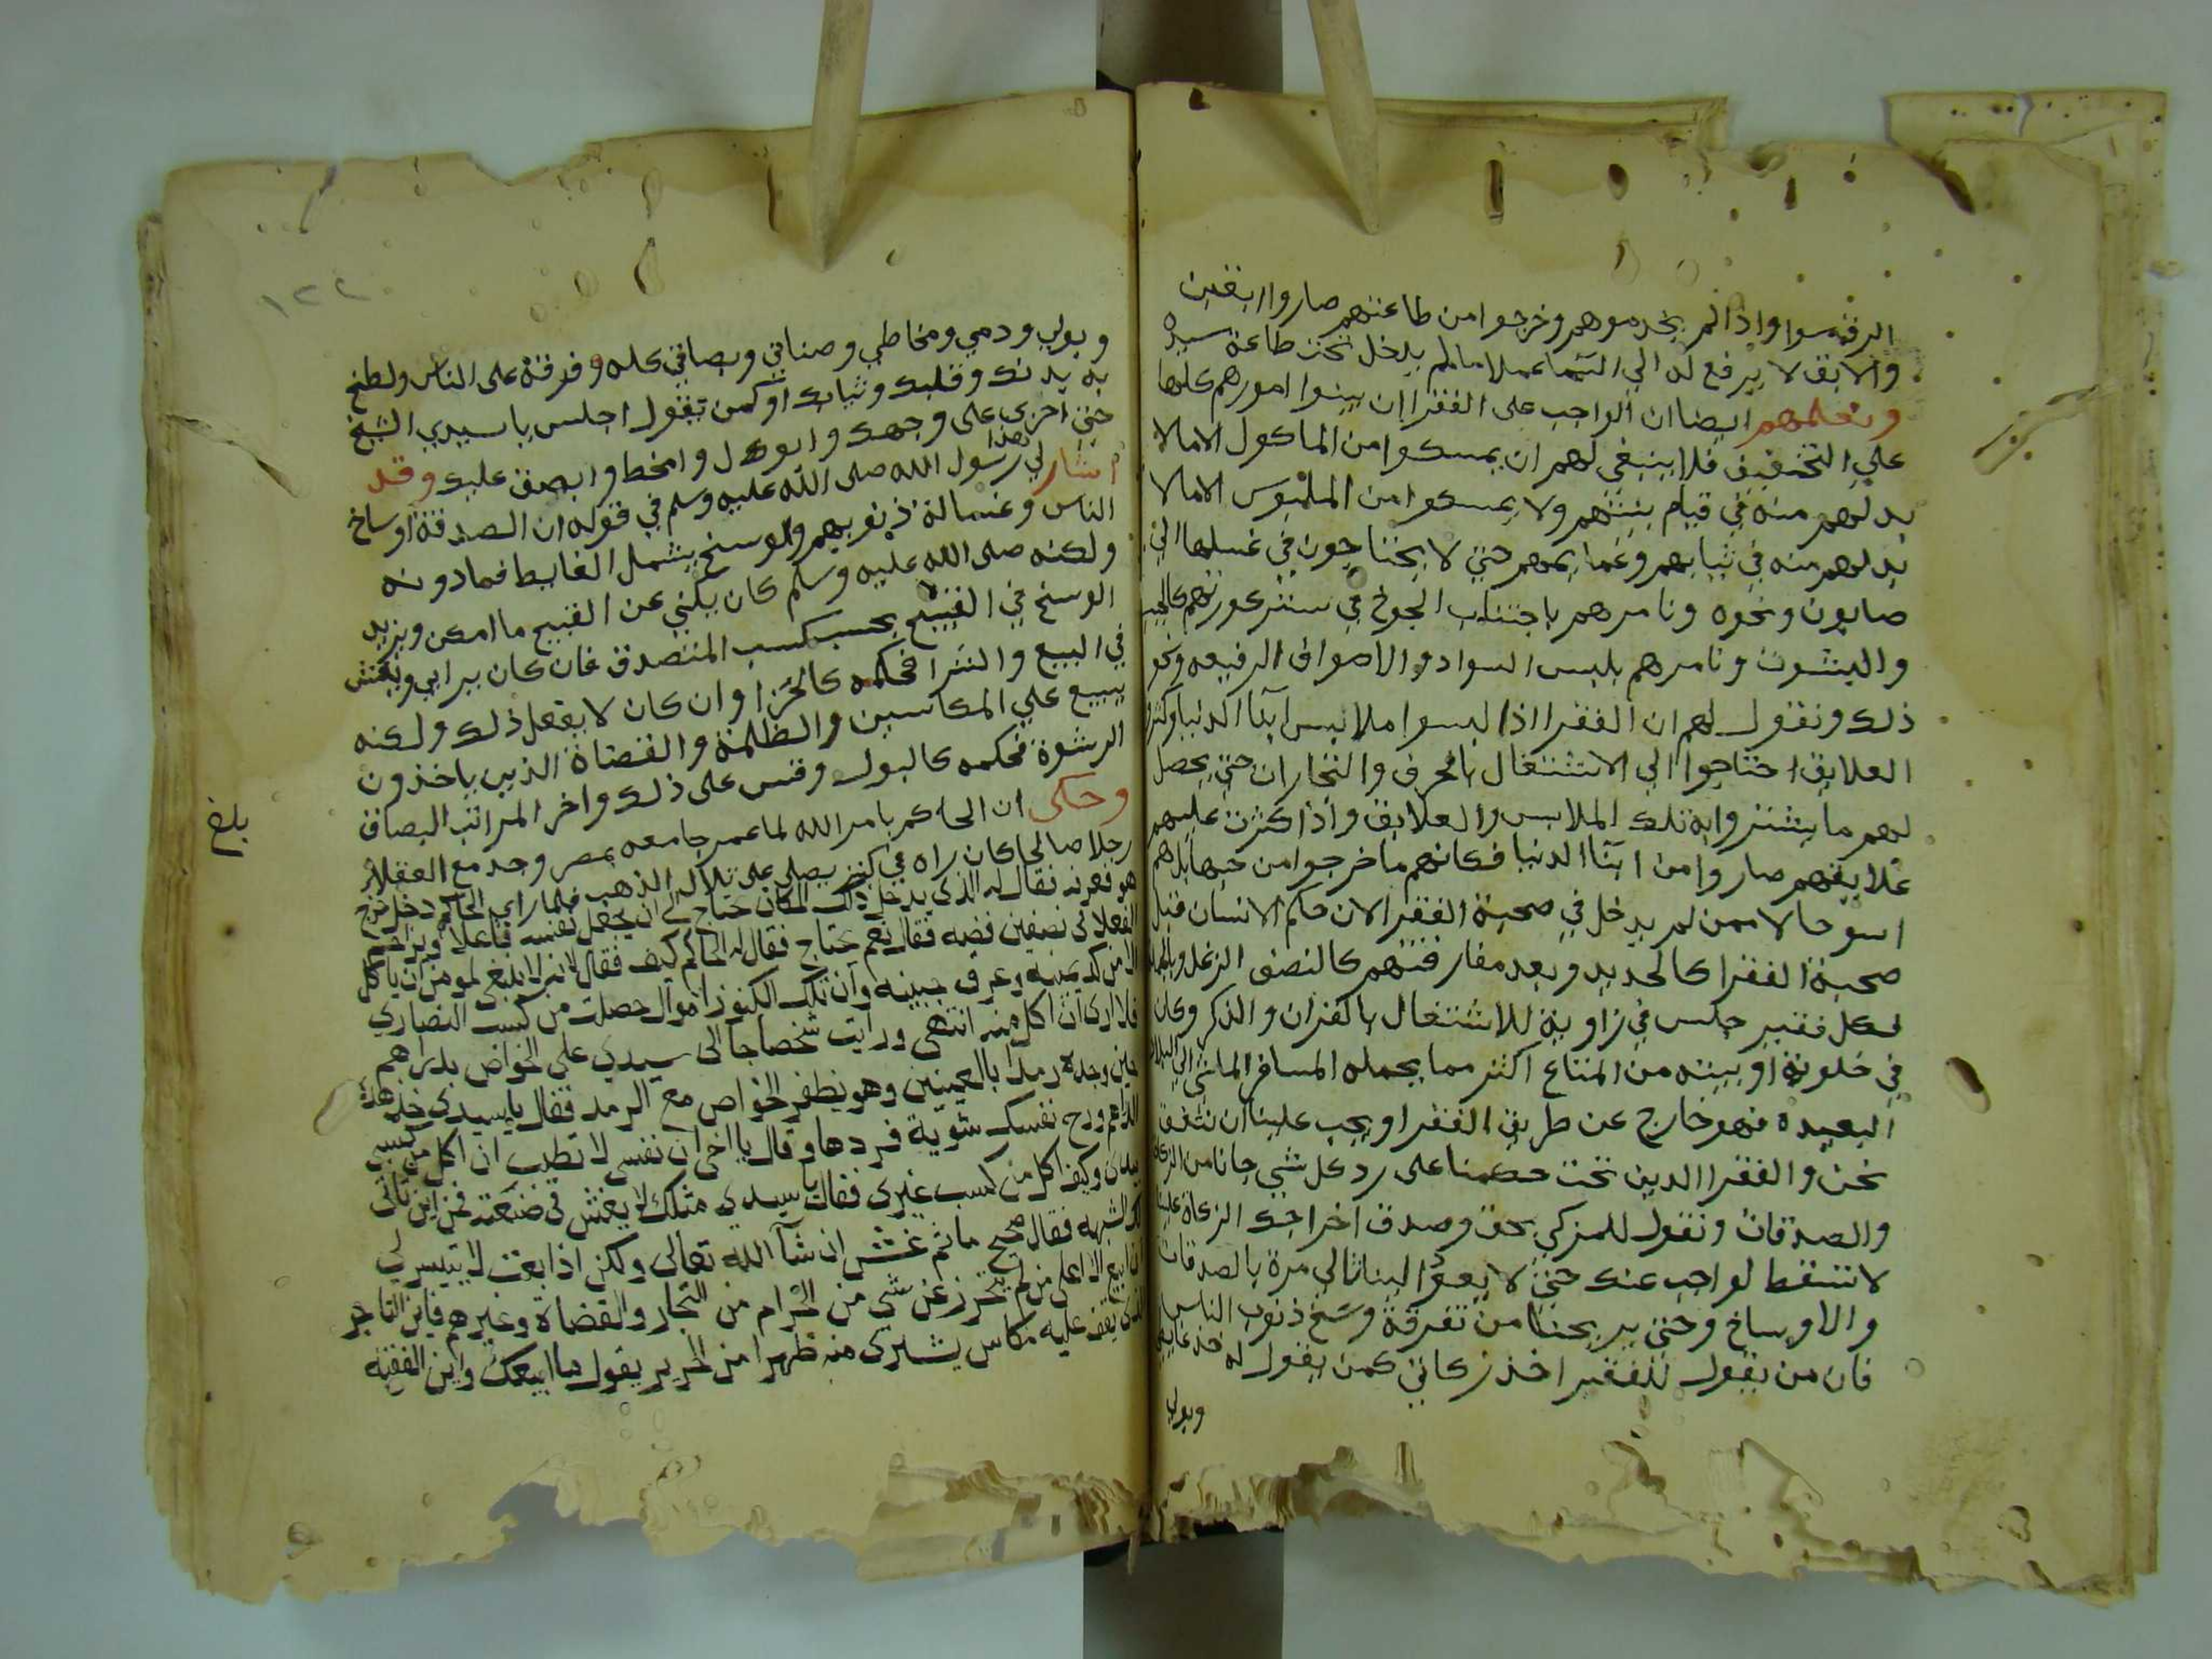 الرقه سوا واذا لم يخدموهم وخرجوا من طاعتهم صاروا ابقين
والابق لا يرفع له الي السما عملا ما لم يدخل تحت طاعة سيده
ونعلمهم ايضا ان الواجب على الفقرا ان يبنوا امورهم كلها
علي التخفيف فلا ينبغي لهم ان يمسكوا من الماكول الا ما لا
بد لهم منه في قيام بنيتهم ولا يمسكوا من الملبوس الا ما لا
بد لهم منه في ثيابهم وعمايمهم حتي لا يحتاجون في غسلها الي
صابون ونحوه ونامرهم باجتناب الجوخ في ستر عورتهم كالجبب
والبشوت ونامرهم بلبس السواد والاصواف الرفيعه ونحو
ذلك ونقول لهم ان الفقرا اذا لبسوا ملابس ابنا الدنيا وكثروا
العلايق احتاجوا الي الاشتغال بالحرف والتجارات حتي يحصل
لهم ما يشتروا به تلك الملابس والعلايق واذا كثرت عليهم
علايقهم صاروا من ابنا الدنيا فكانهم ما خرجوا من حبها بل هم
اسو حالا ممن لم يدخل في صحبة الفقرا لان حكم الانسان قبل
صحبة الفقرا كالحديد وبعد مفارقتهم كالنصف الزغل وبالجملة
فكل فقير جلس في زاوية للاشتغال بالقران والذكر وكان
في خلوته او بيته من المتاع اكثر مما يحمله المسافر الماشي الي البلاد
البعيدة فهو خارج عن طريق الفقرا ويجب علينا ان نتفق
نحن والفقرا الذين تحت حكمنا على رد كل شي جانا من الزكاة
والصدقات ونقول للمزكي بحق وصدق اخراجك الزكاة علينا
لا تسقط الواجب عنك حتي لا يعود الينا ثالي مرة بالصدقات
والاوساخ وحتي يريحنا من تفرقة وسخ ذنوب الناس
فان من يقول للفقير اخذ زكاتي كمن يقول له خذ غايطي
وبولي
١٢٢
وبولي ودمي ومخاطي وصناني وبصاقي كله وفرقه على الناس ولطخ
به بدنك وقلبك وثيابك او كمن تقول اجلس يا سيدي الشيخ
حتى اخرى على وجهك وابول وامخط وابصق عليك وقد
اشار لهذا رسول الله صلى الله عليه وسلم في قوله ان الصدقة اوساخ
الناس وغسالة ذنوبهم والوسخ يشمل الغايط فما دونه
ولكنه صلى الله عليه وسلم كان يكني عن القبيح ما امكن ويزيد
الوسخ في القبيح بحسب كسب المتصدق فان كان يرابي ويغش
في البيع والشرا فحكمه كالخرا وان كان لا يفعل ذلك ولكنه
يبيع علي المكاسين والظلمة والقضاة الذين ياخذون
الرشوة فحكمه كالبول وقس على ذلك واخر المراتب البصاق
وحكى ان الحاكم بامر الله لما عمر جامعه بمصر وجد مع الفعلا
رجلا صالحا كان راه في كنز يصلي على تلال الذهب فلما راى الحاكم دخل
هو نعرفه فقال له الذي يدخل ذلك المكان حتاج الى ان يجعل نفسه فاعلا ويزاحم
الفعلا في نصفين فضه فقال نعم حتاج فقال له الحاكم كيف فقال لانه لا ينبغ لمومن ان ياكل
الا من كد يمينه وعرق جبينه وان تلك الكنوز اموال حصلت من كسب النصارى
فلا ارى ان اكل منه انتهى ورايت شخصا جا الى سيدي علي الخواص بدراهم
حين وجده رمدا بالعينين وهو يظفر الخواص مع الرمد فقال يا سيدي خذ هذه
الدراهم ورح نفسك شوية فردها وقال يا اخي ان نفسي لا تطيب ان اكل من كسبي
بيدي وكيف اكل من كسب غيري فقال يا سيدي مثلك لا يغش في صنعته فمن اين تاتي
لك الشبهه فقال صحيح ما ثم غش ان شآ الله تعالى ولكن اذا بعت لا يتيسر لي
ان ابيع الا على من لم يتحرز عن شي من الحرام من التجار والقضاة وغيرهم فاين التاجر
الذي يقف عليه مكاس يشترى منه ظهرا من الحرير يقول ما ابيعك واين الفقيه
بلغ